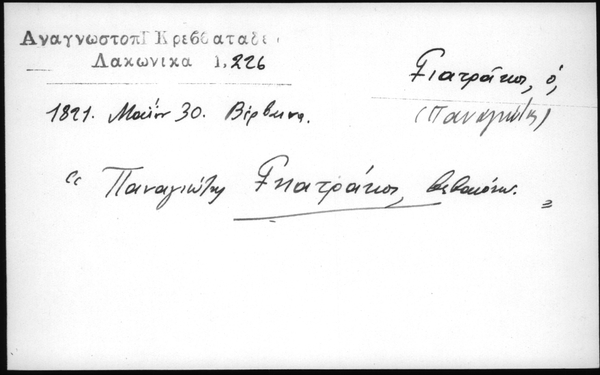 Αναγνωστοπ Γ Κρεββαταδε
Λακωνικα 1,226
Γιατράκος, ὁ,
(Παναγιώτης)
1821. Μαΐου 30. Βέρβενα.
“ Παναγιώτης Γηατράκος, βεβαιόνω. „